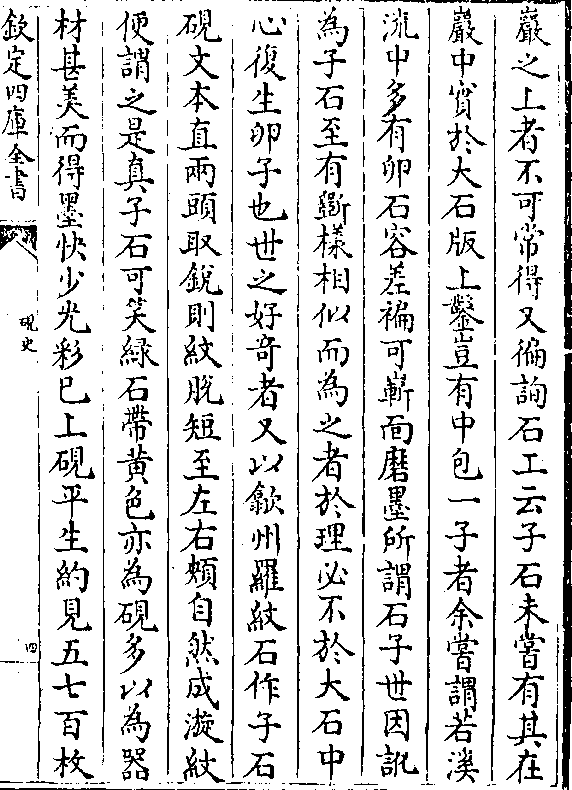 巖之上者不可常得又徧詢石工云子石未嘗有其在
巖中實於大石版上鑿豈有中包一子者余嘗謂若溪
流中多有卵石容差褊可嶄面磨墨所謂石子世因訛
為子石至有斵樣相似而為之者於理必不於大石中
心復生卵子也世之好竒者又以歙州羅紋石作子石
硯文本直兩頭取銳則紋脫短至左右頰自然成漩紋
便謂之是真子石可笑緑石帶黄色亦為硯多以為器
材甚美而得墨快少光彩已上硯平生約見五七百枚
欽定四庫全書
硯史
四